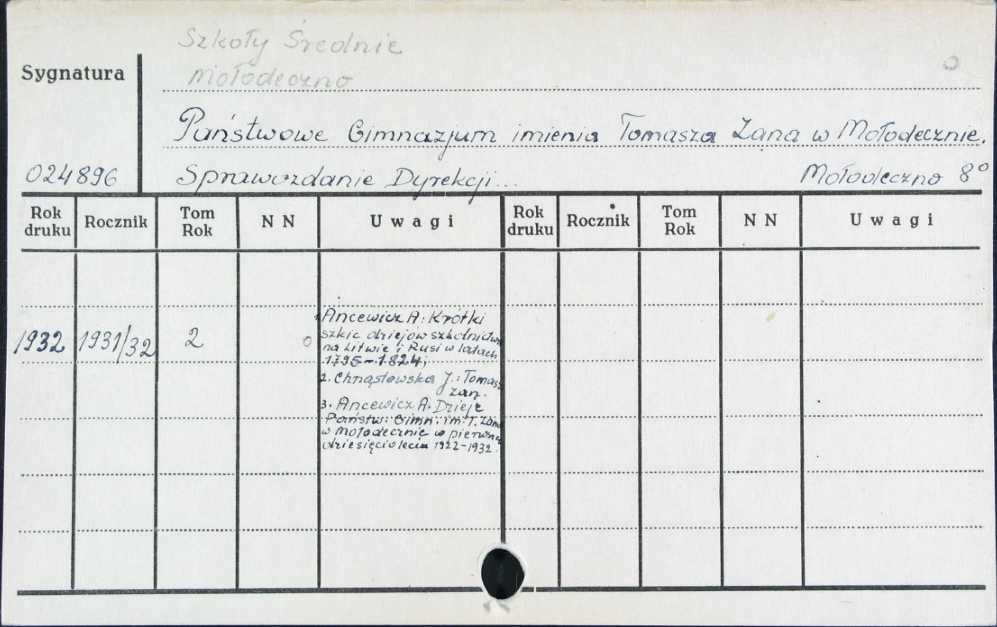 Szkoły Średnie
Sygnatura
Mołodeczno
Państwowe Gimnazjum imienia Tomasza Zana w Mołodecznie.
024896
Sprawozdanie Dyrekcji...
Mołodeczno 8°
Rok druku Rocznik Tom Rok NN Uwagi Rok druku Rocznik Tom Rok NN Uwagi
1932 1931/32 2
Ancewicz A: Krótki
szkic dziejów szkolnictwa
na Litwie i Rusi w latach
1795-1824;
2. Chrząstowska J.: Tomasz
Zan.
3. Ancewicz A. Dzieje
Państw. Gimn. im. T. Zana
w Mołodecznie w pierwszym
dziesięcioleciu 1922-1932.